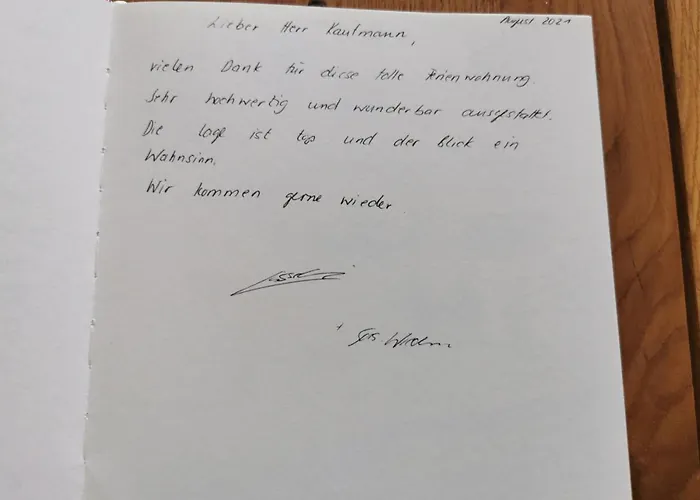 August 2021
Lieber Herr Kaufmann,
vielen Dank für diese tolle Ferienwohnung.
Sehr hochwertig und wunderbar ausgestattet.
Die Lage ist top und der Blick ein
Wahnsinn.
Wir kommen gerne wieder
+